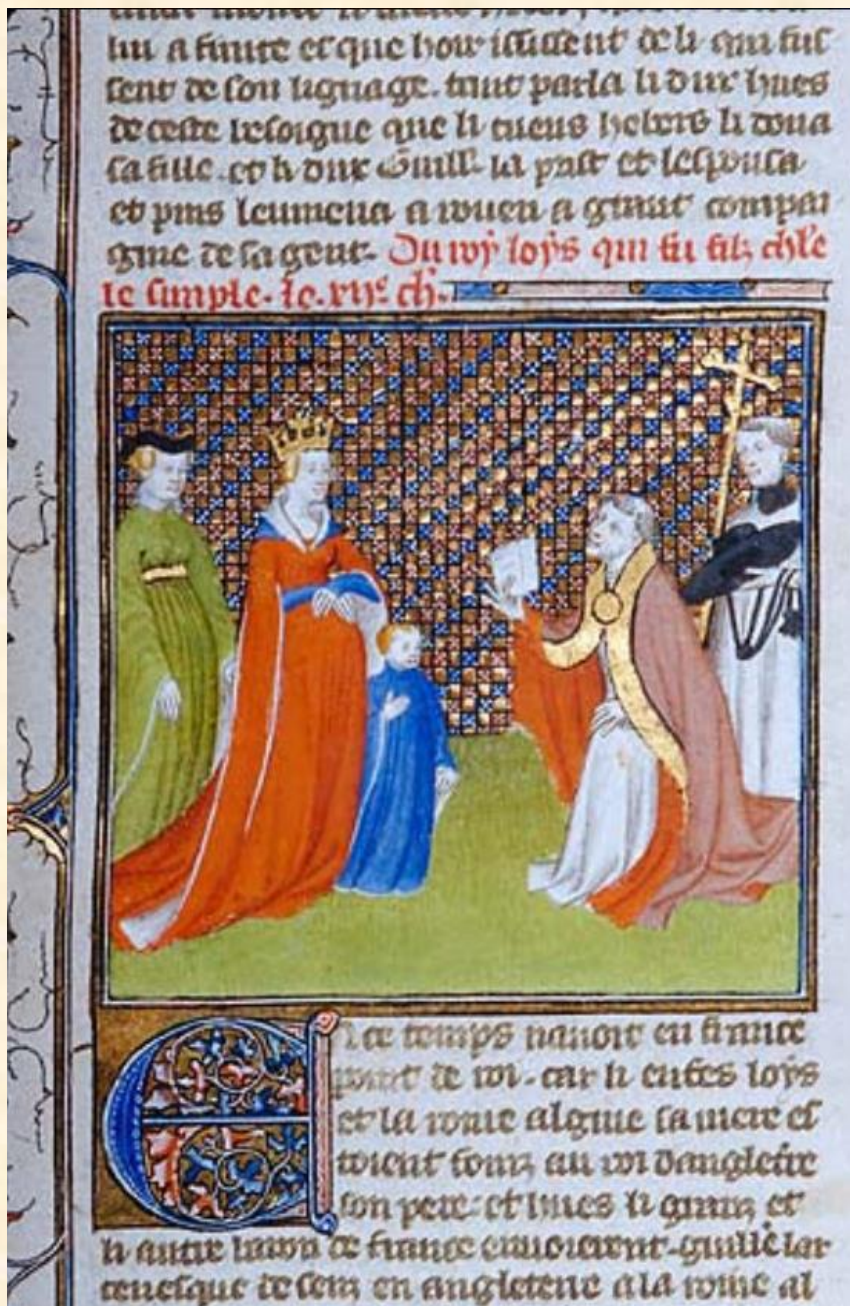 et que hoir ississent de li qui fus
sent de son lignage. tant parla li dux hues
de ceste besoigne que li cuens hebers li dona
sa fille. et li dux Guill. la prist et lespousa
et puis lenmena a rouen a grant compai
gnie de sa gent. Du roy loys qui fu filz chle
le simple. le. ch.
En ce temps nauoit en france
point de roi. car li enfes loys
et la roine algiue sa mere es
toient fouiz au roi dangletre
son pere. et hues li granz et
li autre baron de france enuoierent. guille lar
ceuesque de senz en angleterre a la roine al